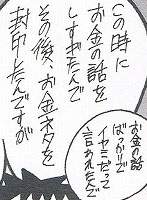 この時に
お金の話を
しすぎたんで
その後、お金ネタを
封印したんですが
お金の話
ばっかりで
イヤミだって
言われたんで